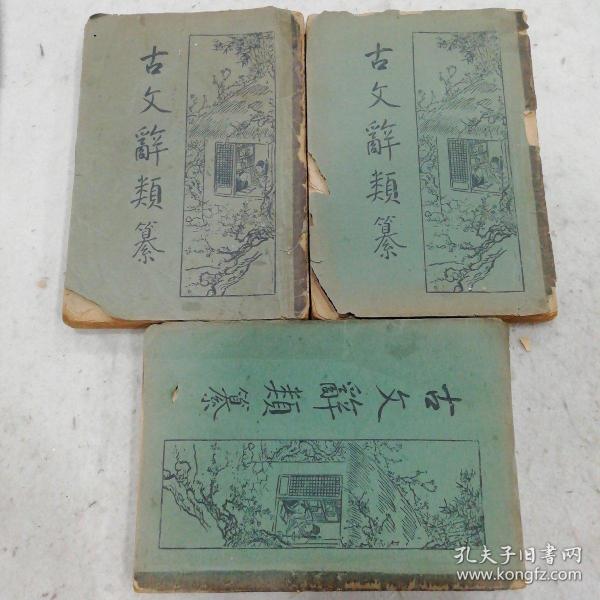 古文辭類纂
古文辭類纂
古文辭類纂
孔夫子旧书网
www.kongfz.com